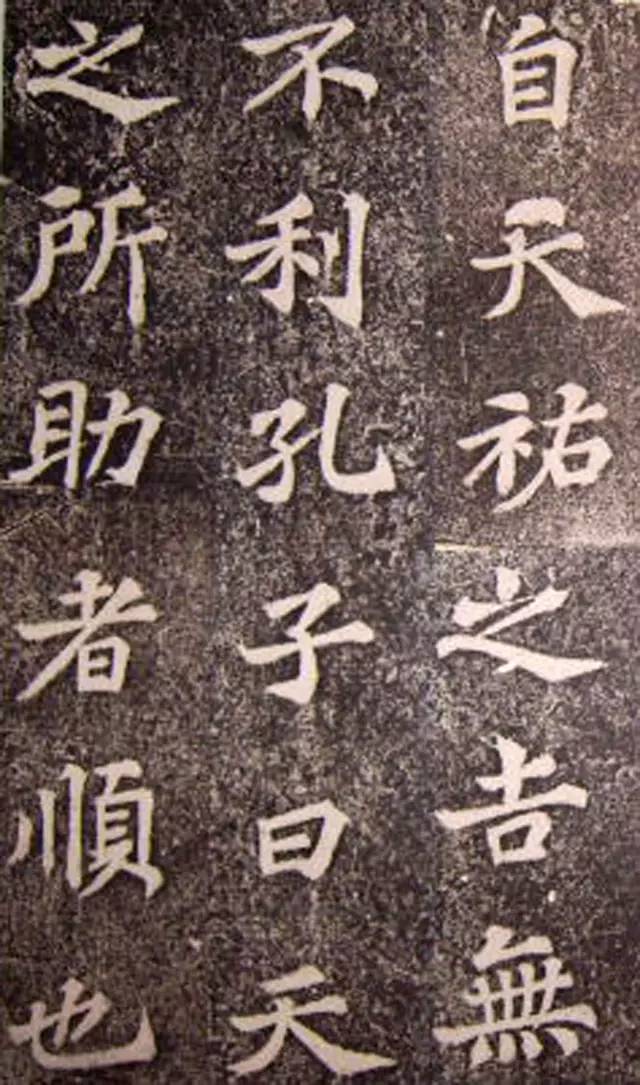 自天祐之吉無
不利孔子曰天
之所助者順也